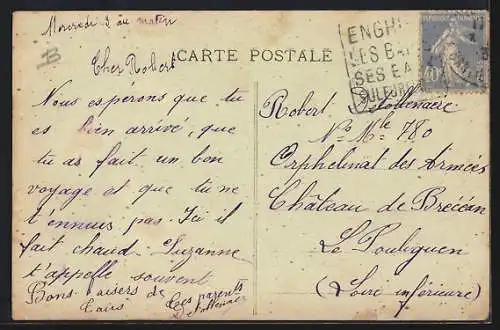 Mercredi 2 au matin
CARTE POSTALE
Cher Robert
Nous espérons que tu
es bien arrivé, que
tu as fait un bon
voyage et que tu ne
t'ennuis pas. Ici il
fait chaud. Suzanne
t'appelle souvent
Bons baisers de
tes parents
Detollenaere
ENGHI
LES BAI
SES EA
SULFUR
Robert Detollenaere
No Mle 780
Orphelinat des Armées
Château de Brécéan
Le Pouliguen
(Loire inférieure)